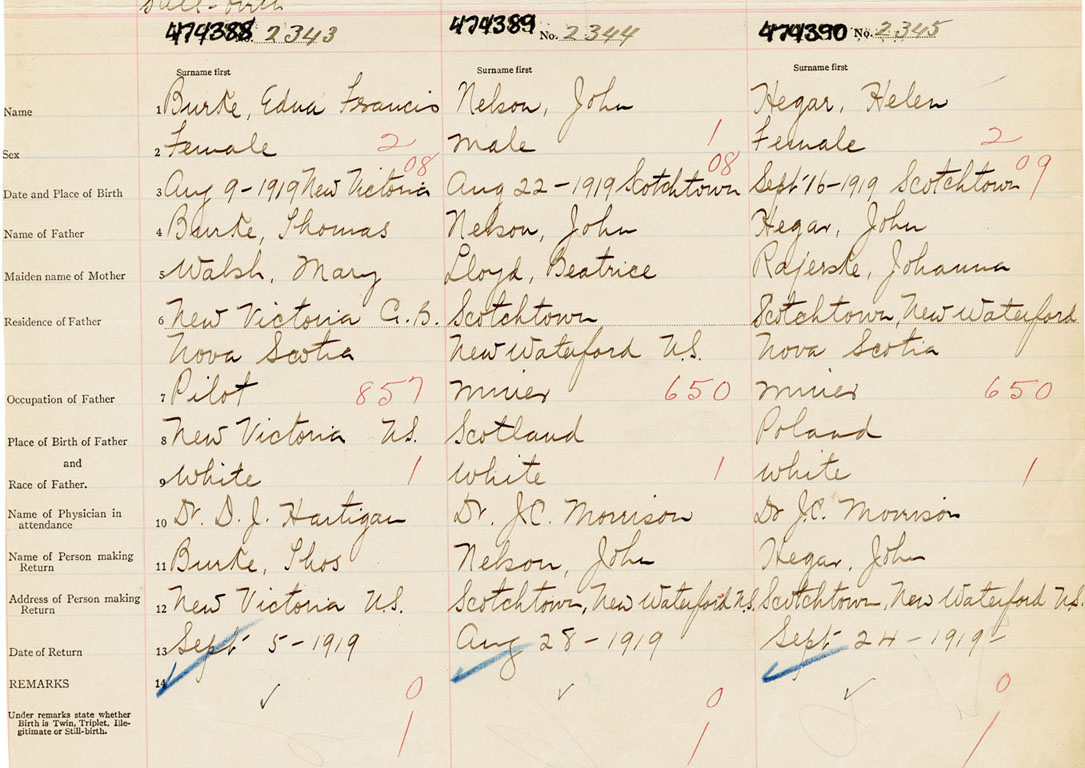 Still-birth
474388 2343 474389 No. 2344 474390 No. 2345
Surname first Surname first Surname first
Name 1 Burke, Edna Francis Nelson, John Hegar, Helen
Sex 2 Female 2 male 1 Female 2
08 08 09
Date and Place of Birth 3 Aug 9-1919 New Victoria Aug 22-1919 Scotchtown Sept 16-1919 Scotchtown
Name of Father 4 Burke, Thomas Nelson, John Hegar, John
Maiden name of Mother 5 Walsh, Mary Lloyd, Beatrice Rajerske, Johanna
Residence of Father 6 New Victoria C.B. Scotchtown Scotchtown, New Waterford
Nova Scotia New Waterford N.S. Nova Scotia
Occupation of Father 7 Pilot 857 miner 650 miner 650
Place of Birth of Father 8 New Victoria N.S. Scotland Poland
and
Race of Father. 9 White 1 White 1 White 1
Name of Physician in
attendance 10 Dr. D. J. Hartigan Dr. J.C. Morrison Dr J.C. Morrison
Name of Person making
Return 11 Burke, Thos Nelson, John Hegar, John
Address of Person making
Return 12 New Victoria N.S. Scotchtown, New Waterford N.S. Scotchtown, New Waterford N.S.
Date of Return 13 Sept 5-1919 Aug 28-1919 Sept 24-1919-
REMARKS 14 0 0 0
Under remarks state whether
Birth is Twin, Triplet, Ille-
gitimate or Still-birth. 1 1 1